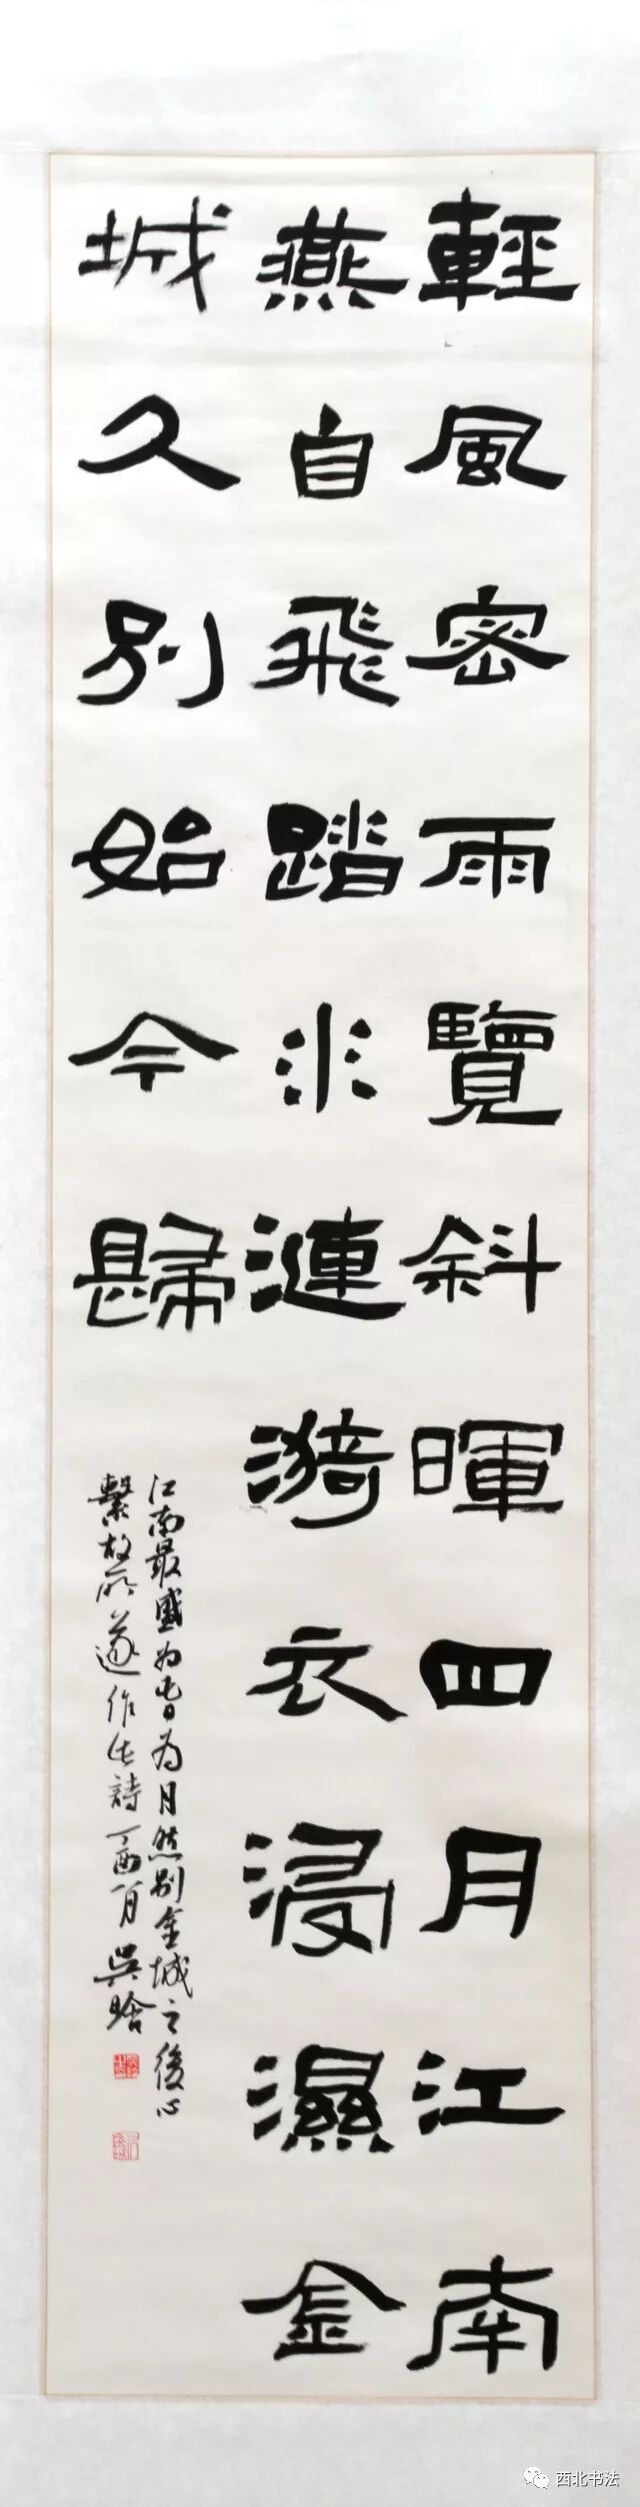 輕風密雨覽斜暉四月江南
燕自飛踏水漣漪衣浸濕金
城久別始今歸
江南最盛為當為月然別金城之後心
繫故所遂作此詩丁酉八月吳晗
西北书法